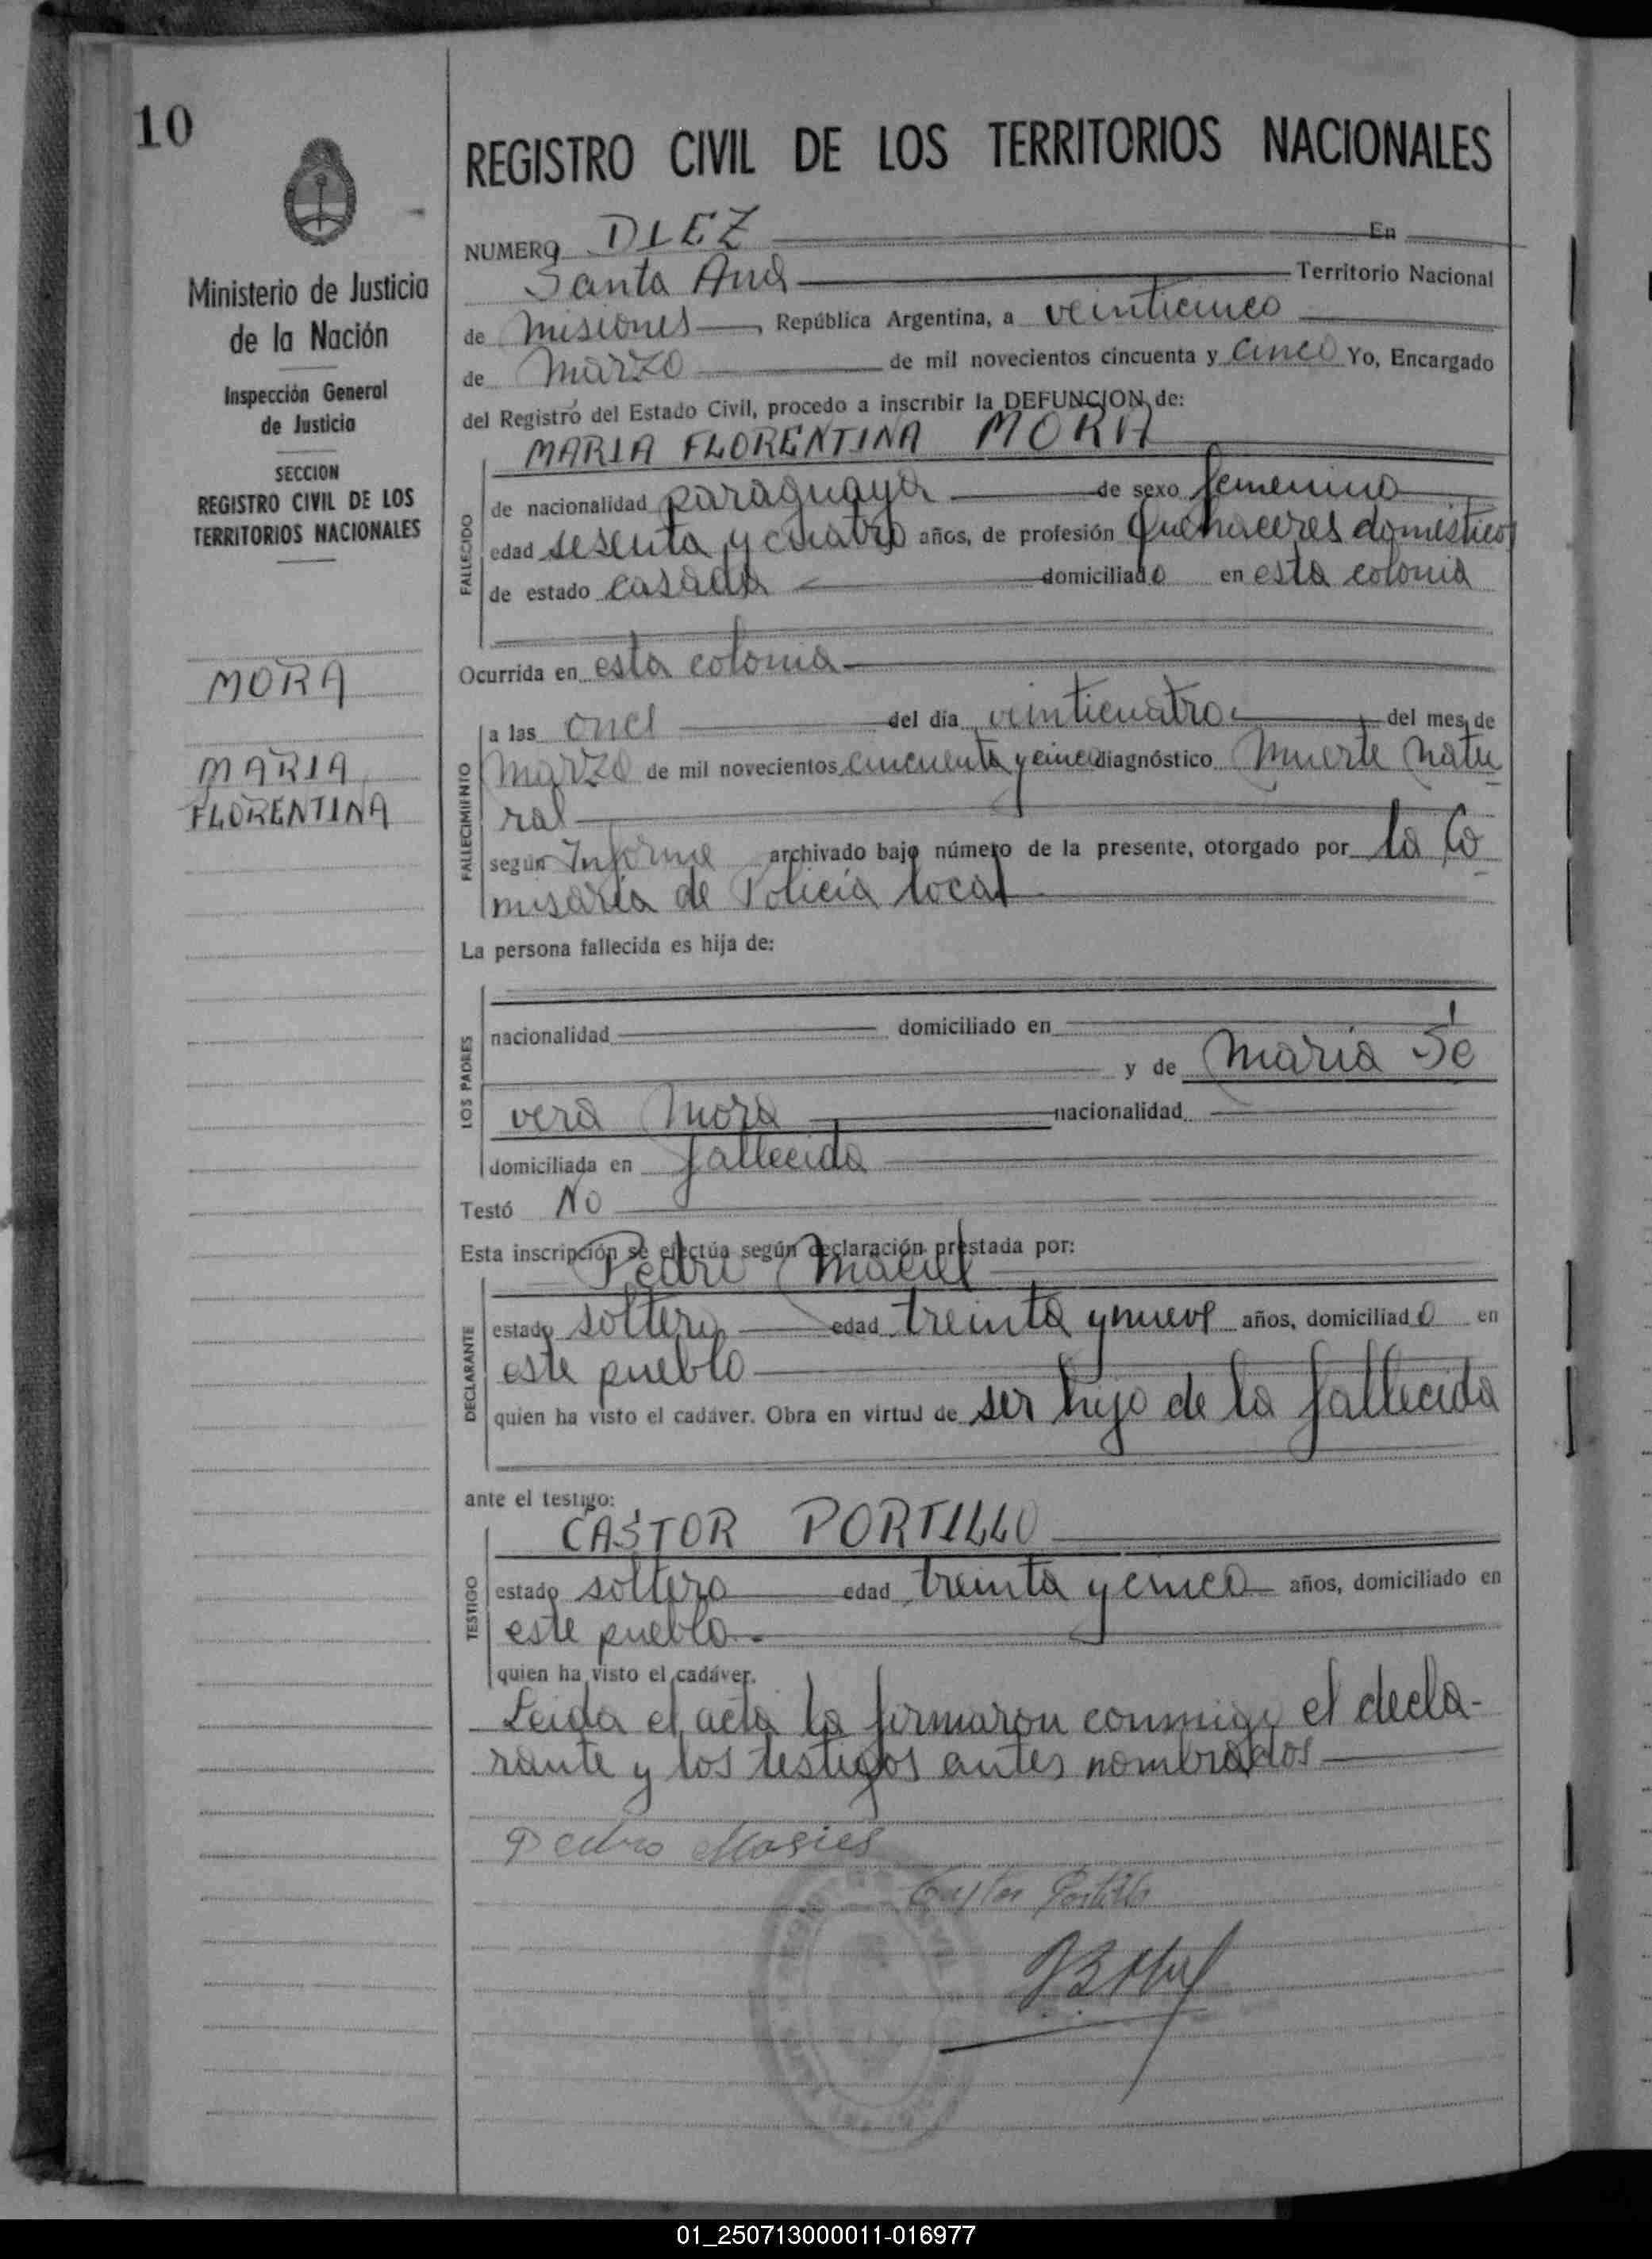 10
REGISTRO CIVIL DE LOS TERRITORIOS NACIONALES
Ministerio de Justicia
de la Nación
Inspección General
de Justicia
SECCION
REGISTRO CIVIL DE LOS
TERRITORIOS NACIONALES
MORA
MARIA
FLORENTINA
NUMERO DIEZ En
Santa Ana Territorio Nacional
de Misiones, República Argentina, a veinticinco
de Marzo de mil novecientos cincuenta y cinco Yo, Encargado
del Registro del Estado Civil, procedo a inscribir la DEFUNCION de:
MARIA FLORENTINA MORA
FALLECIDO
de nacionalidad paraguaya de sexo femenino
edad sesenta y cuatro años, de profesión Quehaceres domésticos
de estado casada domiciliado en esta colonia
Ocurrida en esta colonia
FALLECIMIENTO
a las once del día veinticuatro del mes de
Marzo de mil novecientos cincuenta y cinco diagnóstico Muerte Natu
ral
según Informe archivado bajo número de la presente, otorgado por la Co
misaría de Policía local
La persona fallecida es hija de:
LOS PADRES
nacionalidad domiciliado en
y de María Sé
vera Mora nacionalidad
domiciliada en fallecida
Testó No
Esta inscripción se efectúa según declaración prestada por:
Pedro Maciel
DECLARANTE
estado soltero edad treinta y nueve años, domiciliado en
este pueblo
quien ha visto el cadáver. Obra en virtud de ser hijo de la fallecida
ante el testigo:
CASTOR PORTILLO
TESTIGO
estado soltero edad treinta y cinco años, domiciliado en
este pueblo.
quien ha visto el cadáver.
Leida el acta la firmaron conmigo el decla-
rante y los testigos antes nombrados
Pedro Masiel
Castor Portillo
01_250713000011-016977